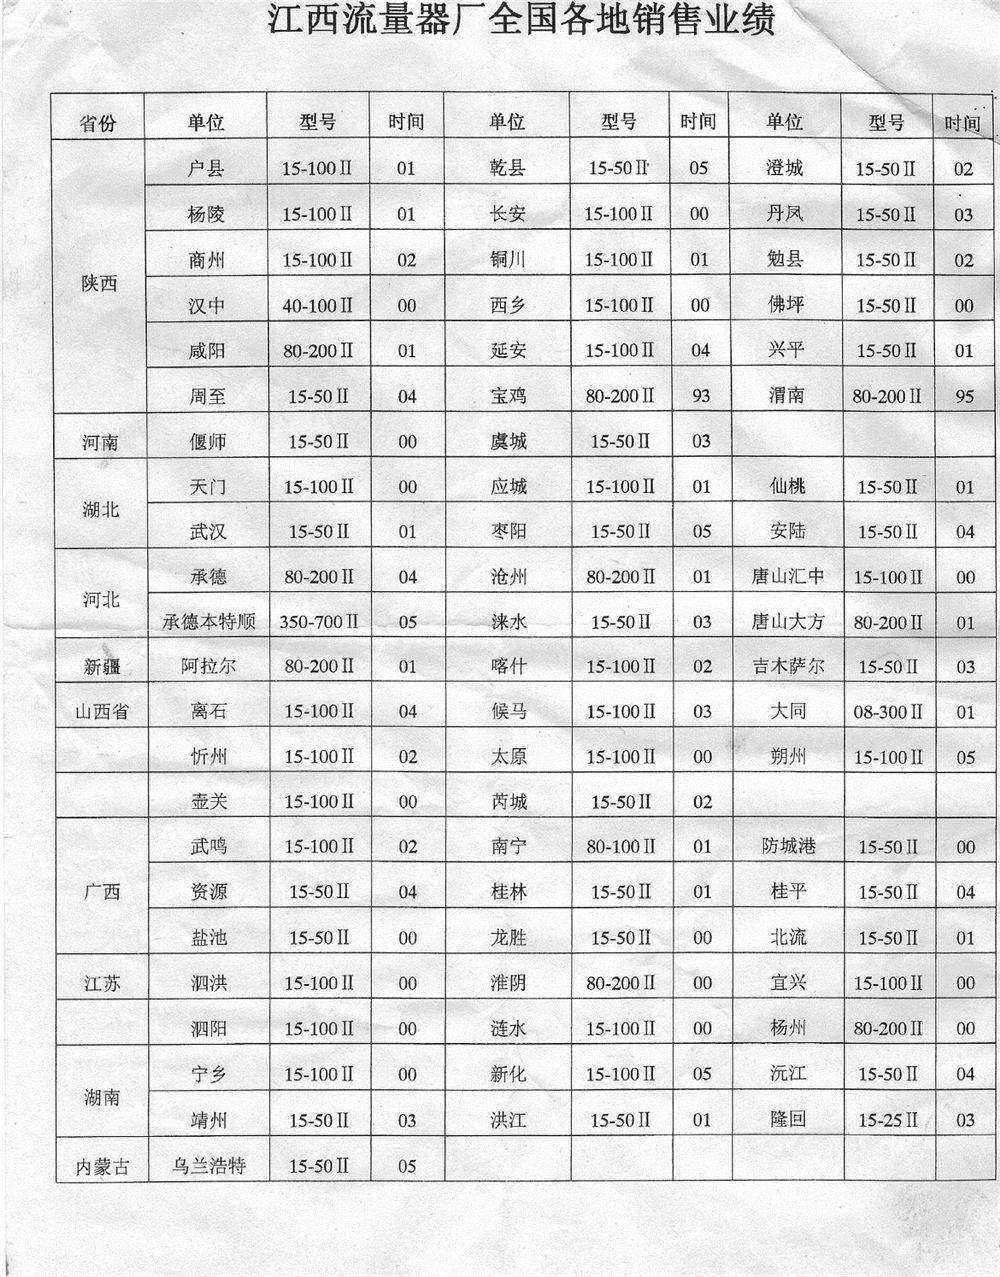 江西流量器厂全国各地销售业绩
省份 单位 型号 时间 单位 型号 时间 单位 型号 时间
户县 15-100Ⅱ 01 乾县 15-50Ⅱ 05 澄城 15-50Ⅱ 02
杨陵 15-100Ⅱ 01 长安 15-100Ⅱ 00 丹凤 15-50Ⅱ 03
商州 15-100Ⅱ 02 铜川 15-100Ⅱ 01 勉县 15-50Ⅱ 02
陕西
汉中 40-100Ⅱ 00 西乡 15-100Ⅱ 00 佛坪 15-50Ⅱ 00
咸阳 80-200Ⅱ 01 延安 15-100Ⅱ 04 兴平 15-50Ⅱ 01
周至 15-50Ⅱ 04 宝鸡 80-200Ⅱ 93 渭南 80-200Ⅱ 95
河南 偃师 15-50Ⅱ 00 虞城 15-50Ⅱ 03
湖北 天门 15-100Ⅱ 00 应城 15-100Ⅱ 01 仙桃 15-50Ⅱ 01
武汉 15-50Ⅱ 01 枣阳 15-50Ⅱ 05 安陆 15-50Ⅱ 04
河北 承德 80-200Ⅱ 04 沧州 80-200Ⅱ 01 唐山汇中 15-100Ⅱ 00
承德本特顺 350-700Ⅱ 05 涞水 15-50Ⅱ 03 唐山大方 80-200Ⅱ 01
新疆 阿拉尔 80-200Ⅱ 01 喀什 15-100Ⅱ 02 吉木萨尔 15-50Ⅱ 03
山西省 离石 15-100Ⅱ 04 候马 15-100Ⅱ 03 大同 08-300Ⅱ 01
忻州 15-100Ⅱ 02 太原 15-100Ⅱ 00 朔州 15-100Ⅱ 05
壶关 15-100Ⅱ 00 芮城 15-50Ⅱ 02
武鸣 15-100Ⅱ 02 南宁 80-100Ⅱ 01 防城港 15-50Ⅱ 00
广西 资源 15-50Ⅱ 04 桂林 15-50Ⅱ 01 桂平 15-50Ⅱ 04
盐池 15-50Ⅱ 00 龙胜 15-50Ⅱ 00 北流 15-50Ⅱ 01
江苏 泗洪 15-100Ⅱ 00 淮阴 80-200Ⅱ 00 宜兴 15-100Ⅱ 00
泗阳 15-100Ⅱ 00 涟水 15-100Ⅱ 00 杨州 80-200Ⅱ 00
湖南 宁乡 15-100Ⅱ 00 新化 15-100Ⅱ 05 沅江 15-50Ⅱ 04
靖州 15-50Ⅱ 03 洪江 15-50Ⅱ 01 隆回 15-25Ⅱ 03
内蒙古 乌兰浩特 15-50Ⅱ 05